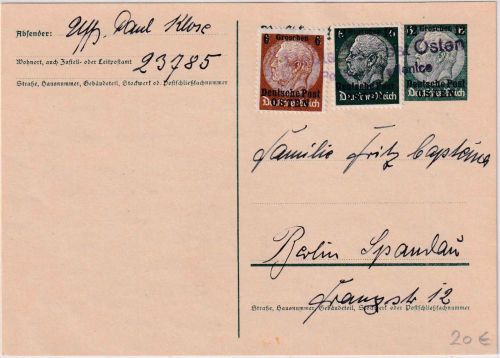 Absender: Uffz. Paul Klose
Wohnort, auch Zustell- oder Leitpostamt
23785
Straße, Hausnummer, Gebäudeteil, Stockwerk od. Postschließfachnummer
6 Groschen 6
Deutsche Post
OSTEN
6 6
Deutsche Post
OSTEN
12 Groschen 12
Deutsche Post
OSTEN
Osten
Familie Fritz
Berlin Spandau
Straße, Hausnummer, Gebäudeteil, Stockwerk oder Postschließfachnummer
12
20 €